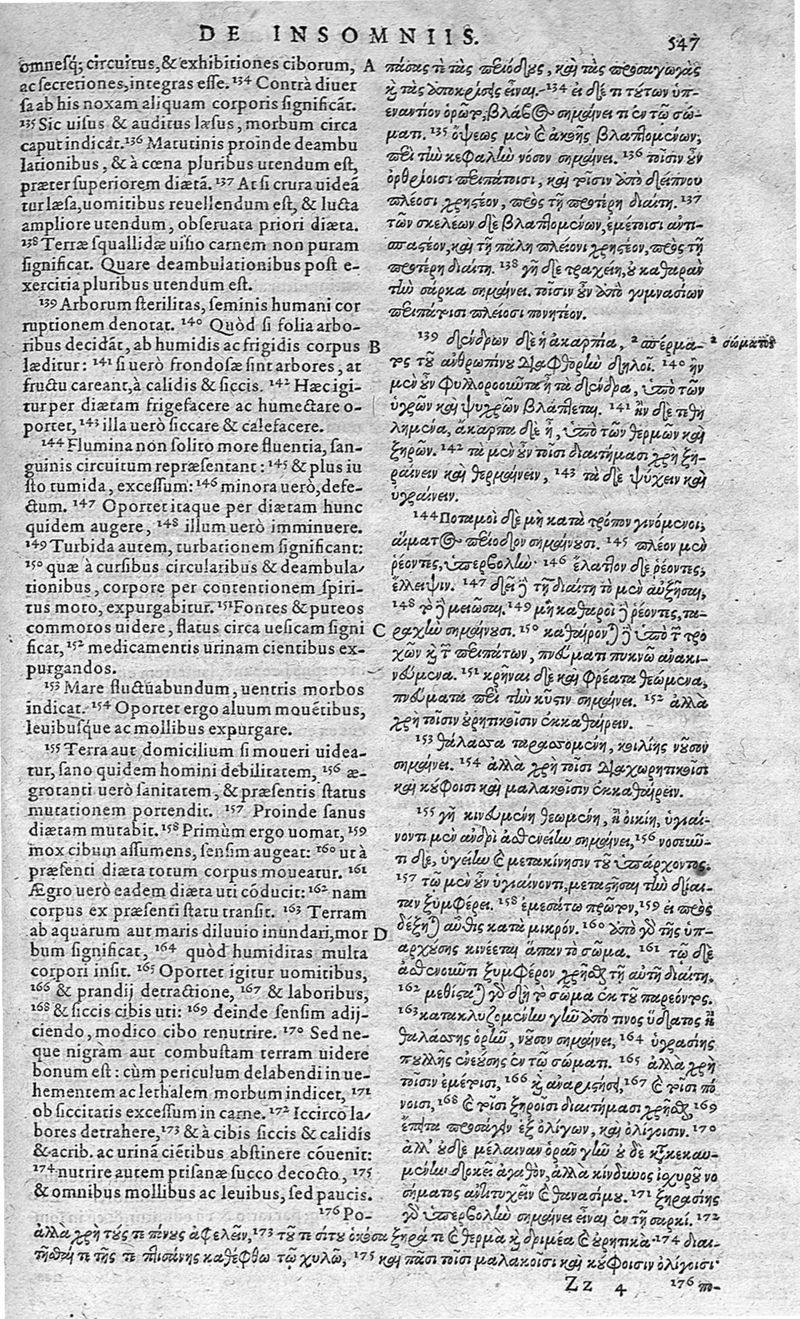 DE INSOMNIIS.
547
omnesq́; circuitus, & exhibitiones ciborum,
ac secretiones, integras esse. 134 Contrà diuer
sa ab his noxam aliquam corporis significāt.
135 Sic uisus & auditus læsus, morbum circa
caput indicāt. 136 Matutinis proinde deambu
lationibus, & à cœna pluribus utendum est,
præter superiorem diætā. 137 At si crura uideā
tur læsa, uomitibus reuellendum est, & lucta
ampliore utendum, obseruata priori diæta.
138 Terræ squallidæ uisio carnem non puram
significat. Quare deambulationibus post e-
xercitia pluribus utendum est.
139 Arborum sterilitas, seminis humani cor
ruptionem denotat. 140 Quòd si folia arbo-
ribus decidāt, ab humidis ac frigidis corpus
læditur: 141 si uerò frondosæ sint arbores, at
fructu careant, à calidis & siccis. 142 Hæc igi
tur per diætam frigefacere ac humectare o-
portet, 143 illa uerò siccare & calefacere.
144 Flumina non solito more fluentia, san-
guinis circuitum repræsentant: 145 & plus iu
sto tumida, excessum: 146 minora uerò, defe-
ctum. 147 Oportet itaque per diætam hunc
quidem augere, 148 illum uerò imminuere.
149 Turbida autem, turbationem significant:
150 quæ à cursibus circularibus & deambula-
tionibus, corpore per contentionem spiri-
tus moto, expurgabitur. 151 Fontes & puteos
commotos uidere, flatus circa uesicam signi
ficat, 152 medicamentis urinam cientibus ex-
purgandos.
153 Mare fluctuabundum, uentris morbos
indicat. 154 Oportet ergo aluum mouētibus,
leuibusque ac mollibus expurgare.
155 Terra aut domicilium si moueri uidea-
tur, sano quidem homini debilitatem, 156 æ-
grotanti uerò sanitatem, & præsentis status
mutationem portendit. 157 Proinde sanus
diætam mutabit. 158 Primùm ergo uomat, 159
mox cibum assumens, sensim augeat: 160 ut à
præsenti diæta totum corpus moueatur. 161
Ægro uerò eadem diæta uti cōducit: 162 nam
corpus ex præsenti statu transit. 163 Terram
ab aquarum aut maris diluuio inundari, mor
bum significat, 164 quòd humiditas multa
corpori insit. 165 Oportet igitur uomitibus,
166 & prandij detractione, 167 & laboribus,
168 & siccis cibis uti: 169 deinde sensim adij-
ciendo, modico cibo renutrire. 170 Sed ne-
que nigrām aut combustam terram uidere
bonum est: cùm periculum delabendi in ue-
hementem ac lethalem morbum indicet, 171
ob siccitatis excessum in carne. 172 Iccirco la-
bores detrahere, 173 & à cibis siccis & calidis
& acrib. ac urinā ciētibus abstinere cōuenit:
174 nutrire autem ptisanæ succo decocto, 175
& omnibus mollibus ac leuibus, sed paucis.
176 Po-
A
B
C
D
πάσας τε τὰς περιόδους, καὶ τὰς προσαγωγὰς
καὶ τὰς ἀποκρίσιας εἶναι. 134 εἰ δέ τι τούτων ὑπ-
εναντίον ὁρῷτο, βλάβος σημαίνει τι ἐν τῷ σώ-
ματι. 135 ὄψεως μὲν καὶ ἀκοῆς βλαπτομένων,
περὶ τὴν κεφαλὴν νόσον σημαίνει. 136 τοῖσιν οὖν
ὀρθρίοισι περιπάτοισι, καὶ τοῖσιν ἀπὸ δείπνου
πλέοσι χρηστέον, πρὸς τῇ προτέρῃ διαίτῃ. 137
τῶν σκελέων δὲ βλαπτομένων, ἐμέτοισι ἀντι-
σπαστέον, καὶ τῇ πάλῃ πλείονι χρηστέον, πρὸς τῇ
προτέρῃ διαίτῃ. 138 γῆ δὲ τραχείη, οὐ καθαρὰν
τὴν σάρκα σημαίνει. τοῖσιν οὖν ἀπὸ γυμνασίων
περιπάτοισι πλείοσι πονητέον.
139 δένδρων δὲ ἡ ἀκαρπία, ² σπέρμα-
τος τοῦ ἀνθρωπίνου διαφθορὴν δηλοῖ. 140 ἢν
μὲν οὖν φυλλοροοῦντα ᾖ τὰ δένδρα, ὑπὸ τῶν
ὑγρῶν καὶ ψυχρῶν βλάπτεται. 141 ἢν δὲ τεθη
λημένα, ἄκαρπα δὲ ᾖ, ὑπὸ τῶν θερμῶν καὶ
ξηρῶν. 142 τὰ μὲν οὖν τοῖσι διαιτήμασι χρὴ ξη-
ραίνειν καὶ θερμαίνειν, 143 τὰ δὲ ψύχειν καὶ
ὑγραίνειν.
144 Ποταμοὶ δὲ μὴ κατὰ τρόπον γινόμενοι,
αἵματος περίοδον σημαίνουσι. 145 πλέον μὲν
ῥέοντες, ὑπερβολὴν· 146 ἔλαττον δὲ ῥέοντες,
ἔλλειψιν. 147 δεῖ δὲ τῇ διαίτῃ τὸ μὲν αὐξῆσαι,
148 τὸ δὲ μειῶσαι. 149 μὴ καθαροὶ δὲ ῥέοντες, τα-
ραχὴν σημαίνουσι. 150 καθαίρονται δὲ ὑπὸ τῶν τρό
χων καὶ τῶν περιπάτων, πνεύματι πυκνῷ ἀνακι-
νεύμενα. 151 κρῆναι δὲ καὶ φρέατα θεώμενα,
πνεύματα περὶ τὴν κύστιν σημαίνει. 152 ἀλλὰ
χρὴ τοῖσιν οὐρητικοῖσιν ἐκκαθαίρειν.
153 θάλασσα ταρασσομένη, κοιλίης νοῦσον
σημαίνει. 154 ἀλλὰ χρὴ τοῖσι διαχωρητικοῖσι
καὶ κούφοισι καὶ μαλακοῖσιν ἐκκαθαίρειν.
155 γῆ κινευμένη θεωμένη, ἢ οἰκίη, ὑγιαί-
νοντι μὲν ἀνδρὶ ἀσθενείην σημαίνει, 156 νοσεῦν-
τι δὲ, ὑγείην καὶ μετακίνησιν τοῦ ὑπάρχοντος.
157 τῷ μὲν οὖν ὑγιαίνοντι, μεταστῆσαι τὴν δίαι-
ταν ξυμφέρει. 158 ἐμεσάτω πρῶτον, 159 εἰ προς
δέξηται αὖθις κατὰ μικρόν. 160 ἀπὸ γὰρ τῆς ὑπ-
αρχούσης κινέεται ἅπαν τὸ σῶμα. 161 τῷ δὲ
ἀσθενοῦντι ξυμφέρον χρῆσθαι τῇ αὐτῇ διαίτῃ.
162 μεθίσταται γὰρ δὴ τὸ σῶμα ἐκ τοῦ παρεόντος.
163 κατακλυζομένην γῆν ἀπό τινος ὕδατος ἢ
θαλάσσης ὁρῆν, νοῦσον σημαίνει, 164 ὑγρασίης
πολλῆς ἐνεούσης ἐν τῷ σώματι. 165 ἀλλὰ χρὴ
τοῖσιν ἐμέτοισι, 166 καὶ ἀναριστήσῃ, 167 καὶ τοῖσι πό
νοισι, 168 καὶ τοῖσι ξηροῖσι διαιτήμασι χρῆσθαι, 169
ἔπειτα προσάγειν ἐξ ὀλίγων, καὶ ὀλίγοισιν. 170
ἀλλ' οὐδὲ μέλαιναν ὁρᾶν γῆν οὐδὲ κεκαυ-
μένην δοκεῖ ἀγαθὸν, ἀλλὰ κίνδυνος ἰσχυροῦ νο
σήματος ἀντιτυχεῖν καὶ θανασίμου. 171 ξηρασίης
γὰρ ὑπερβολὴν σημαίνει εἶναι ἐν τῇ σαρκί. 172
² σώματος
ἀλλὰ χρὴ τούς τε πόνους ἀφελεῖν, 173 τοῦ τε σίτου ὁκόσα ξηρά τε καὶ θερμὰ καὶ δριμέα καὶ οὐρητικὰ· 174 διαι-
τῆσθαί τε τῆς τε πτισάνης καθέφθῳ τῷ χυλῷ, 175 καὶ πᾶσι τοῖσι μαλακοῖσι καὶ κούφοισιν ὀλίγοισι·
Zz 4
176 πο-